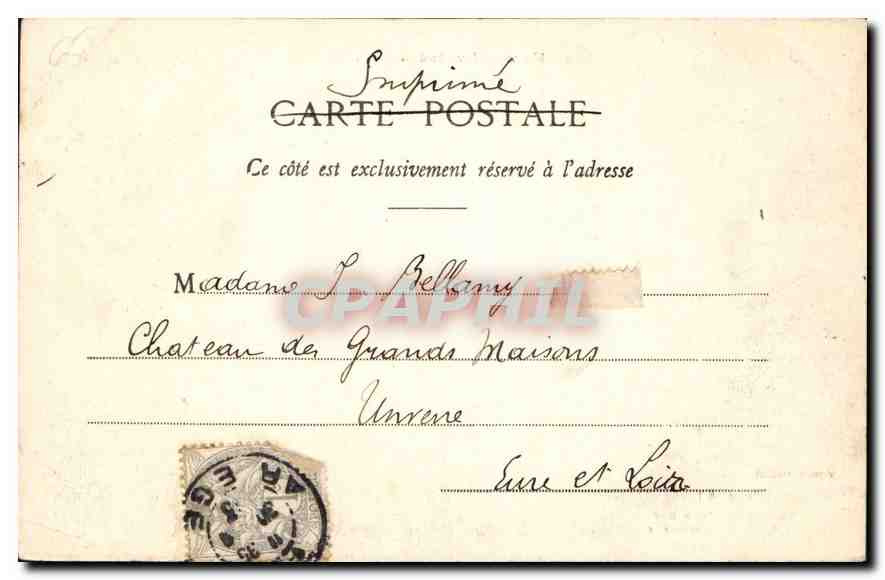 Imprimé
CARTE POSTALE
Ce côté est exclusivement réservé à l'adresse
Madame J. Bellamy
CPAPHIL
Chateau des Grands Maisons
Unverre
Eure et Loir